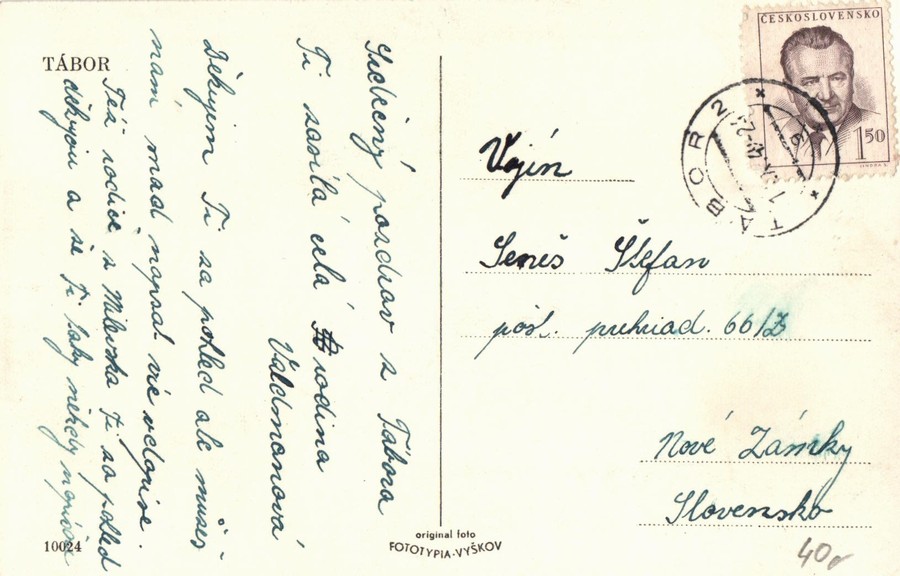 TÁBOR
Srdečný pozdrav z Tábora
Ti zasílá celá rodina
Valdmanová
Děkujem Ti za pohled ale musíš
nám napsat víc
Též rodiče z Milevska Ti za pohled
děkujou a že Ti taky někdy
10024
original foto
FOTOTYPIA-VYŠKOV
ČESKOSLOVENSKO
1.50
TÁBOR 2
Vojín
Seneš Štefan
pošt. prehriad. 66/Z
Nové Zámky
Slovensko
40,-